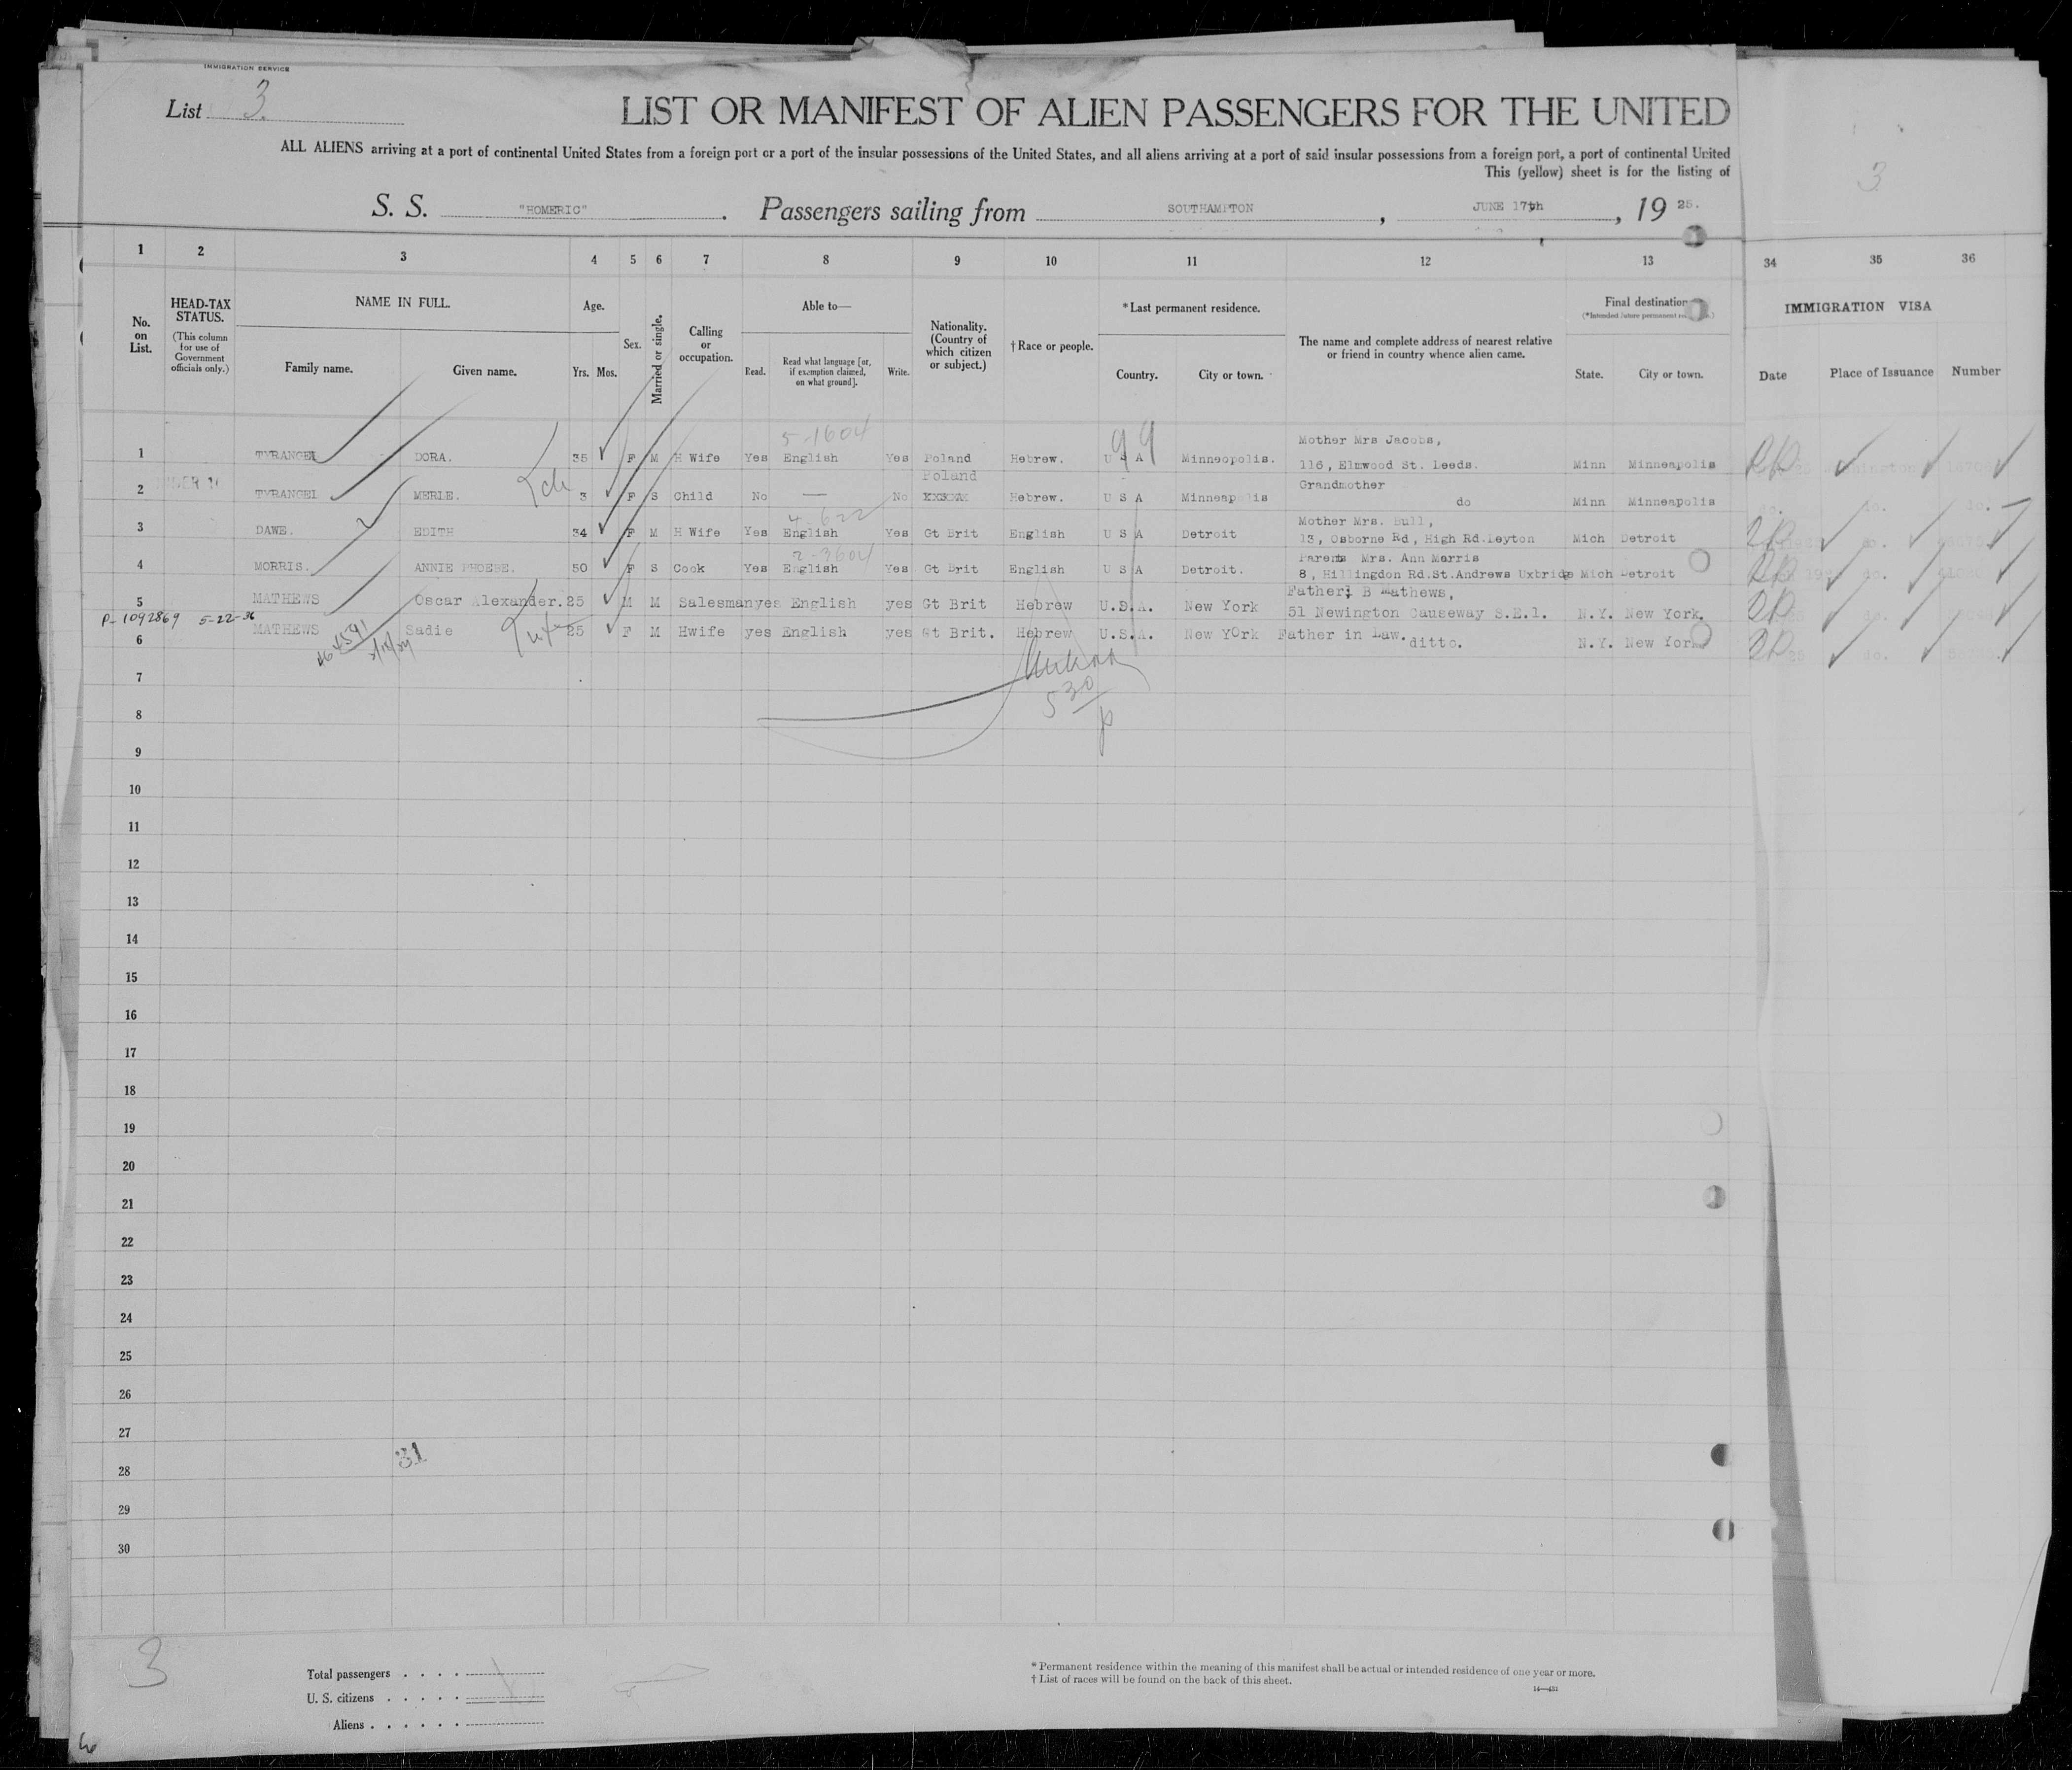 IMMIGRATION SERVICE
List 3.
LIST OR MANIFEST OF ALIEN PASSENGERS FOR THE UNITED
ALL ALIENS arriving at a port of continental United States from a foreign port or a port of the insular possessions of the United States, and all aliens arriving at a port of said insular possessions from a foreign port, a port of continental United
This (yellow) sheet is for the listing of
3
S. S. "HOMERIC". Passengers sailing from SOUTHAMPTON, JUNE 17th, 19 25.
1 2 3 4 5 6 7 8 9 10 11 12 13 34 35 36
No. on List.
HEAD-TAX STATUS.
(This column for use of Government officials only.)
NAME IN FULL.
Family name. Given name.
Age.
Yrs. Mos.
Sex.
Married or single.
Calling or occupation.
Able to—
Read. Read what language [or, if exemption claimed, on what ground]. Write.
Nationality. (Country of which citizen or subject.)
†Race or people.
*Last permanent residence.
Country. City or town.
The name and complete address of nearest relative or friend in country whence alien came.
Final destination
State. City or town.
IMMIGRATION VISA
Date Place of Issuance Number
5-1604
99
Mother Mrs Jacobs,
1 TYRANGEL DORA. 35 F M H Wife Yes English Yes Poland Hebrew. U S A Minneopolis. 116, Elmwood St. Leeds. Minn Minneapolis
Poland
Grandmother
2 TYRANGEL MERLE. 3 F S Child No — No Hebrew. U S A Minneapolis do Minn Minneapolis
4-622
Mother Mrs. Bull,
3 DAWE. EDITH 34 F M H Wife Yes English Yes Gt Brit English U S A Detroit 13, Osborne Rd, High Rd.Leyton Mich Detroit
2-3604
Parents Mrs. Ann Morris
4 MORRIS. ANNIE PHOEBE. 50 F S Cook Yes English Yes Gt Brit English U S A Detroit. 8, Hillingdon Rd.St.Andrews Uxbridge Mich Detroit
Father: B Mathews,
5 MATHEWS Oscar Alexander. 25 M M Salesman yes English yes Gt Brit Hebrew U.S.A. New York 51 Newington Causeway S.E.1. N.Y. New York.
P-1092869 5-22-36
6 MATHEWS Sadie wife 25 F M Hwife yes English yes Gt Brit. Hebrew U.S.A. New YOrk Father in Law. ditto. N.Y. New York
7
530
8
9
10
11
12
13
14
15
16
17
18
19
20
21
22
23
24
25
26
27
31
28
29
30
3
Total passengers
U. S. citizens
Aliens
* Permanent residence within the meaning of this manifest shall be actual or intended residence of one year or more.
† List of races will be found on the back of this sheet.
14—431